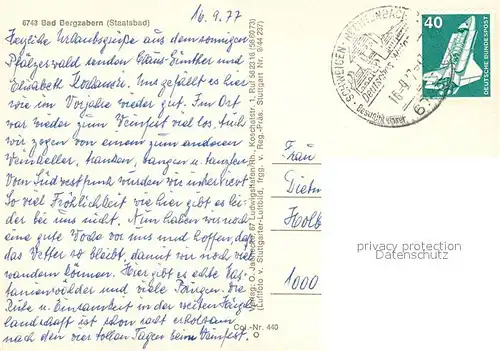 16.9.77
6743 Bad Bergzabern (Staatsbad)
Herzliche Urlaubsgrüße aus dem sonnigen
Pfälzerwald senden Claus-Günther und
Elisabeth. Uns gefällt es hier
wie im Vorjahr wieder gut. Im Ort
war wieder zum Weinfest viel los, auch
wir zogen von einem zum anderen
Weinkeller, tranken, sangen u. tanzten.
Vom Südwestfunk wurden wir interviewt.
So viel Fröhlichkeit wie hier gibt es lei-
der bei uns nicht. Nun haben wir noch
eine gute Woche vor uns und hoffen, daß
das Wetter so bleibt, damit wir noch viel
wandern können. Hier gibt es echte Kas-
tanienwälder und viele Burgen. Die
Ruhe u. Einsamkeit in der weiten
landschaft ist schon recht erholsam
nach den vier tollen Tagen beim Weinfest.
Col.-Nr. 440
Verlag: O. Jaennicke, 67 Ludwigshafen/Rh., Koschatstr. 1, Ruf 562318 (565073)
(Luftfoto v. Stuttgarter-Luftbild, frgg. v. Reg.-Präs. Stuttgart Nr. 9/44 237)
SCHWEIGEN-RECHTENBACH
Deutsches
Besucht
16.-9.77
40
DEUTSCHE BUNDESPOST
Frau
1000
privacy protection
Datenschutz